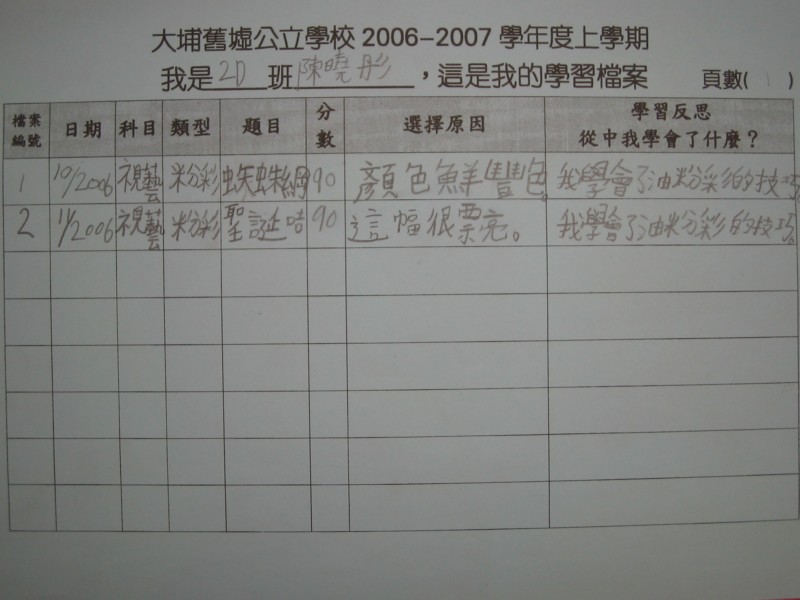 大埔舊墟公立學校 2006-2007 學年度上學期
我是 2D 班 陳曉彤 ，這是我的學習檔案 頁數( 1 )
檔案編號 日期 科目 類型 題目 分數 選擇原因 學習反思 從中我學會了什麼？
1 10/2006 視藝 粉彩 蜘蛛網 90 顏色鮮豐色。 我學會了油粉彩的技巧。
2 11/2006 視藝 粉彩 聖誕咭 90 這幅很票亮。 我學會了油粉彩的技巧。